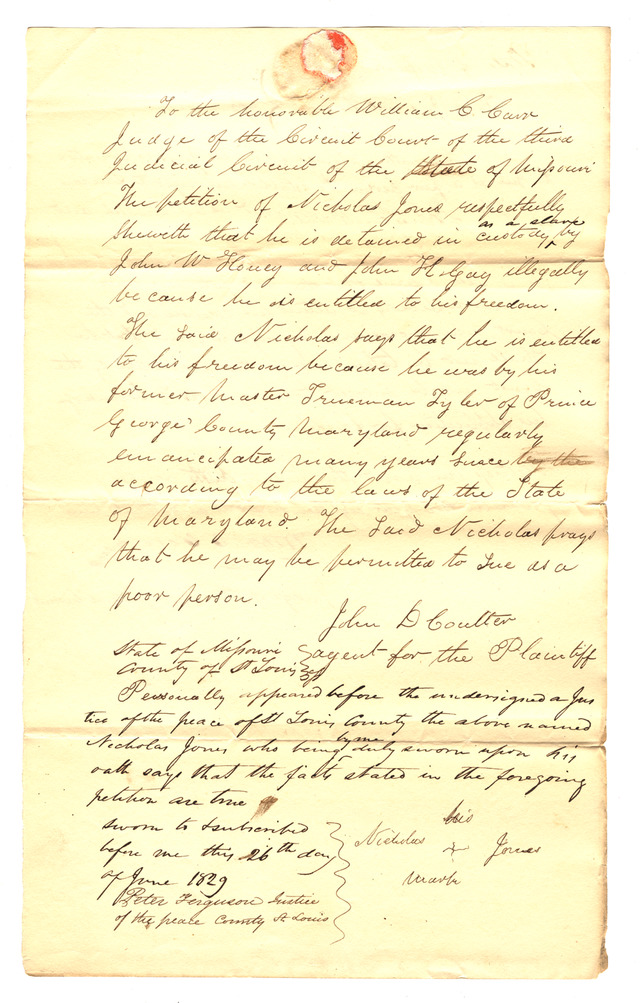 To the honorable William C Carr
Judge of the Circuit Court of the third
Judicial Circuit of the State of Missouri
The petition of Nicholas Jones respectfully
sheweth that he is detained in custody as a slave by
John W Honey and John H Gay illegally
because he is entitled to his freedom.
The said Nicholas says that he is entitled
to his freedom because he was by his
former Master Trueman Tyler of Prince
George County Maryland regularly
emancipated many years since by the
according to the laws of the State
of Maryland. The said Nicholas prays
that he may be permitted to sue as a
poor person.
John D Coulter
agent for the Plaintiff
State of Missouri
County of St Louis
Personally appeared before the undersigned a Jus
tice of the peace of St Louis County the above named
Nicholas Jones who being by me duly sworn upon his
oath says that the facts stated in the foregoing
petition are true
sworn to & subscribed
before me this 26th day
of June 1829
Peter Ferguson Justice
of the peace County St Louis
his
Nicholas + Jones
mark